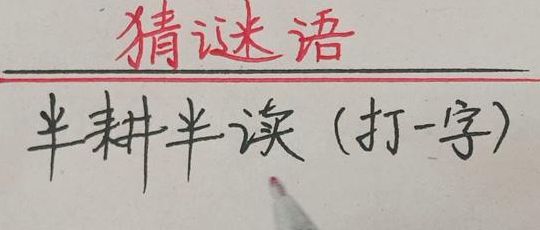 猜谜语
半耕半读（打一字）